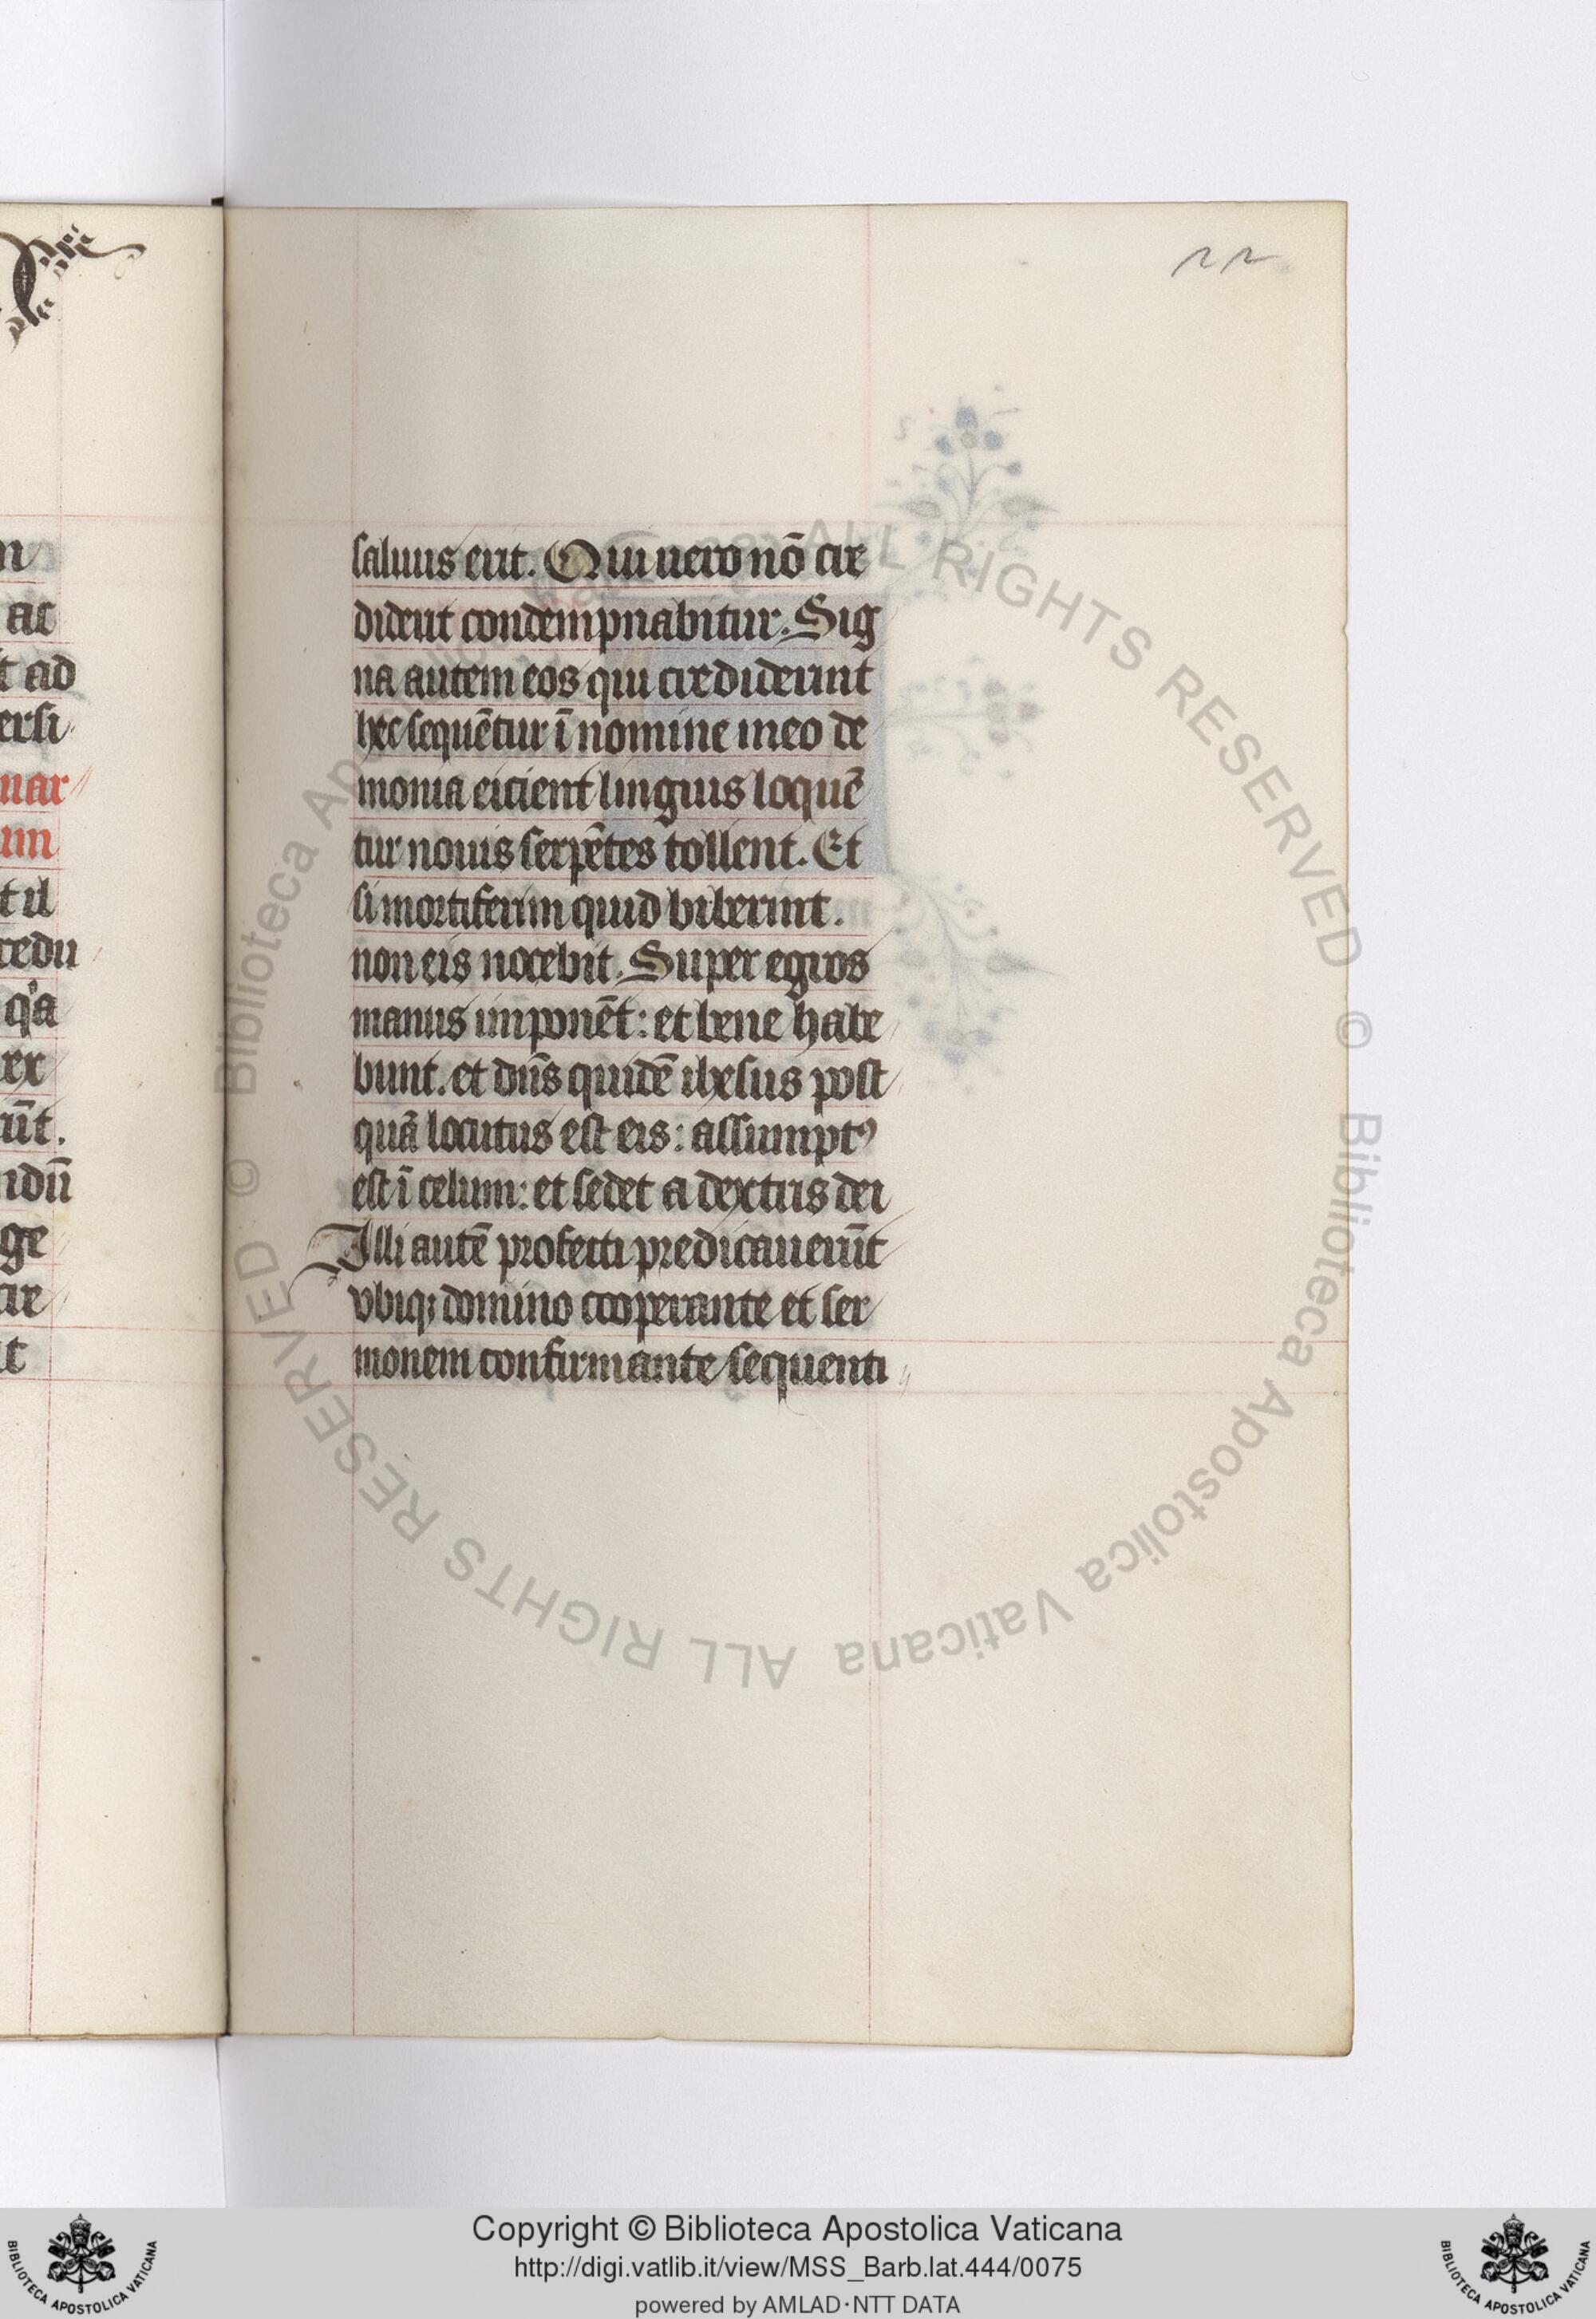 n
ac
t ad
ersi
mar
um
t il
redu
qͥa
ex
ūt.
ndū
ge
cre
it
22
saluus erit. Qui uero nō cre
diderit condempnabitur. Sig
na autem eos qui crediderint
hec sequētur ī nomine meo de
monia eicient linguis loquē
tur nouis serpētes tollent. Et
si mortiferum quid biberint.
non eis nocebit. Super egros
manus imponēt: et bene habe
bunt. et dn̄s quidē ihesus post
quā locutus est eis: assumptꝰ
est ī celum: et sedet a dextris dei
Illi autē profecti predicauerūt
vbiqꝫ domino cooperante et ser
monem confirmante sequenti
© Biblioteca Apostolica Vaticana ALL RIGHTS RESERVED
© Biblioteca Apostolica Vaticana ALL RIGHTS RESERVED
Copyright © Biblioteca Apostolica Vaticana
http://digi.vatlib.it/view/MSS_Barb.lat.444/0075
powered by AMLAD·NTT DATA
BIBLIOTECA APOSTOLICA VATICANA
BIBLIOTECA APOSTOLICA VATICANA